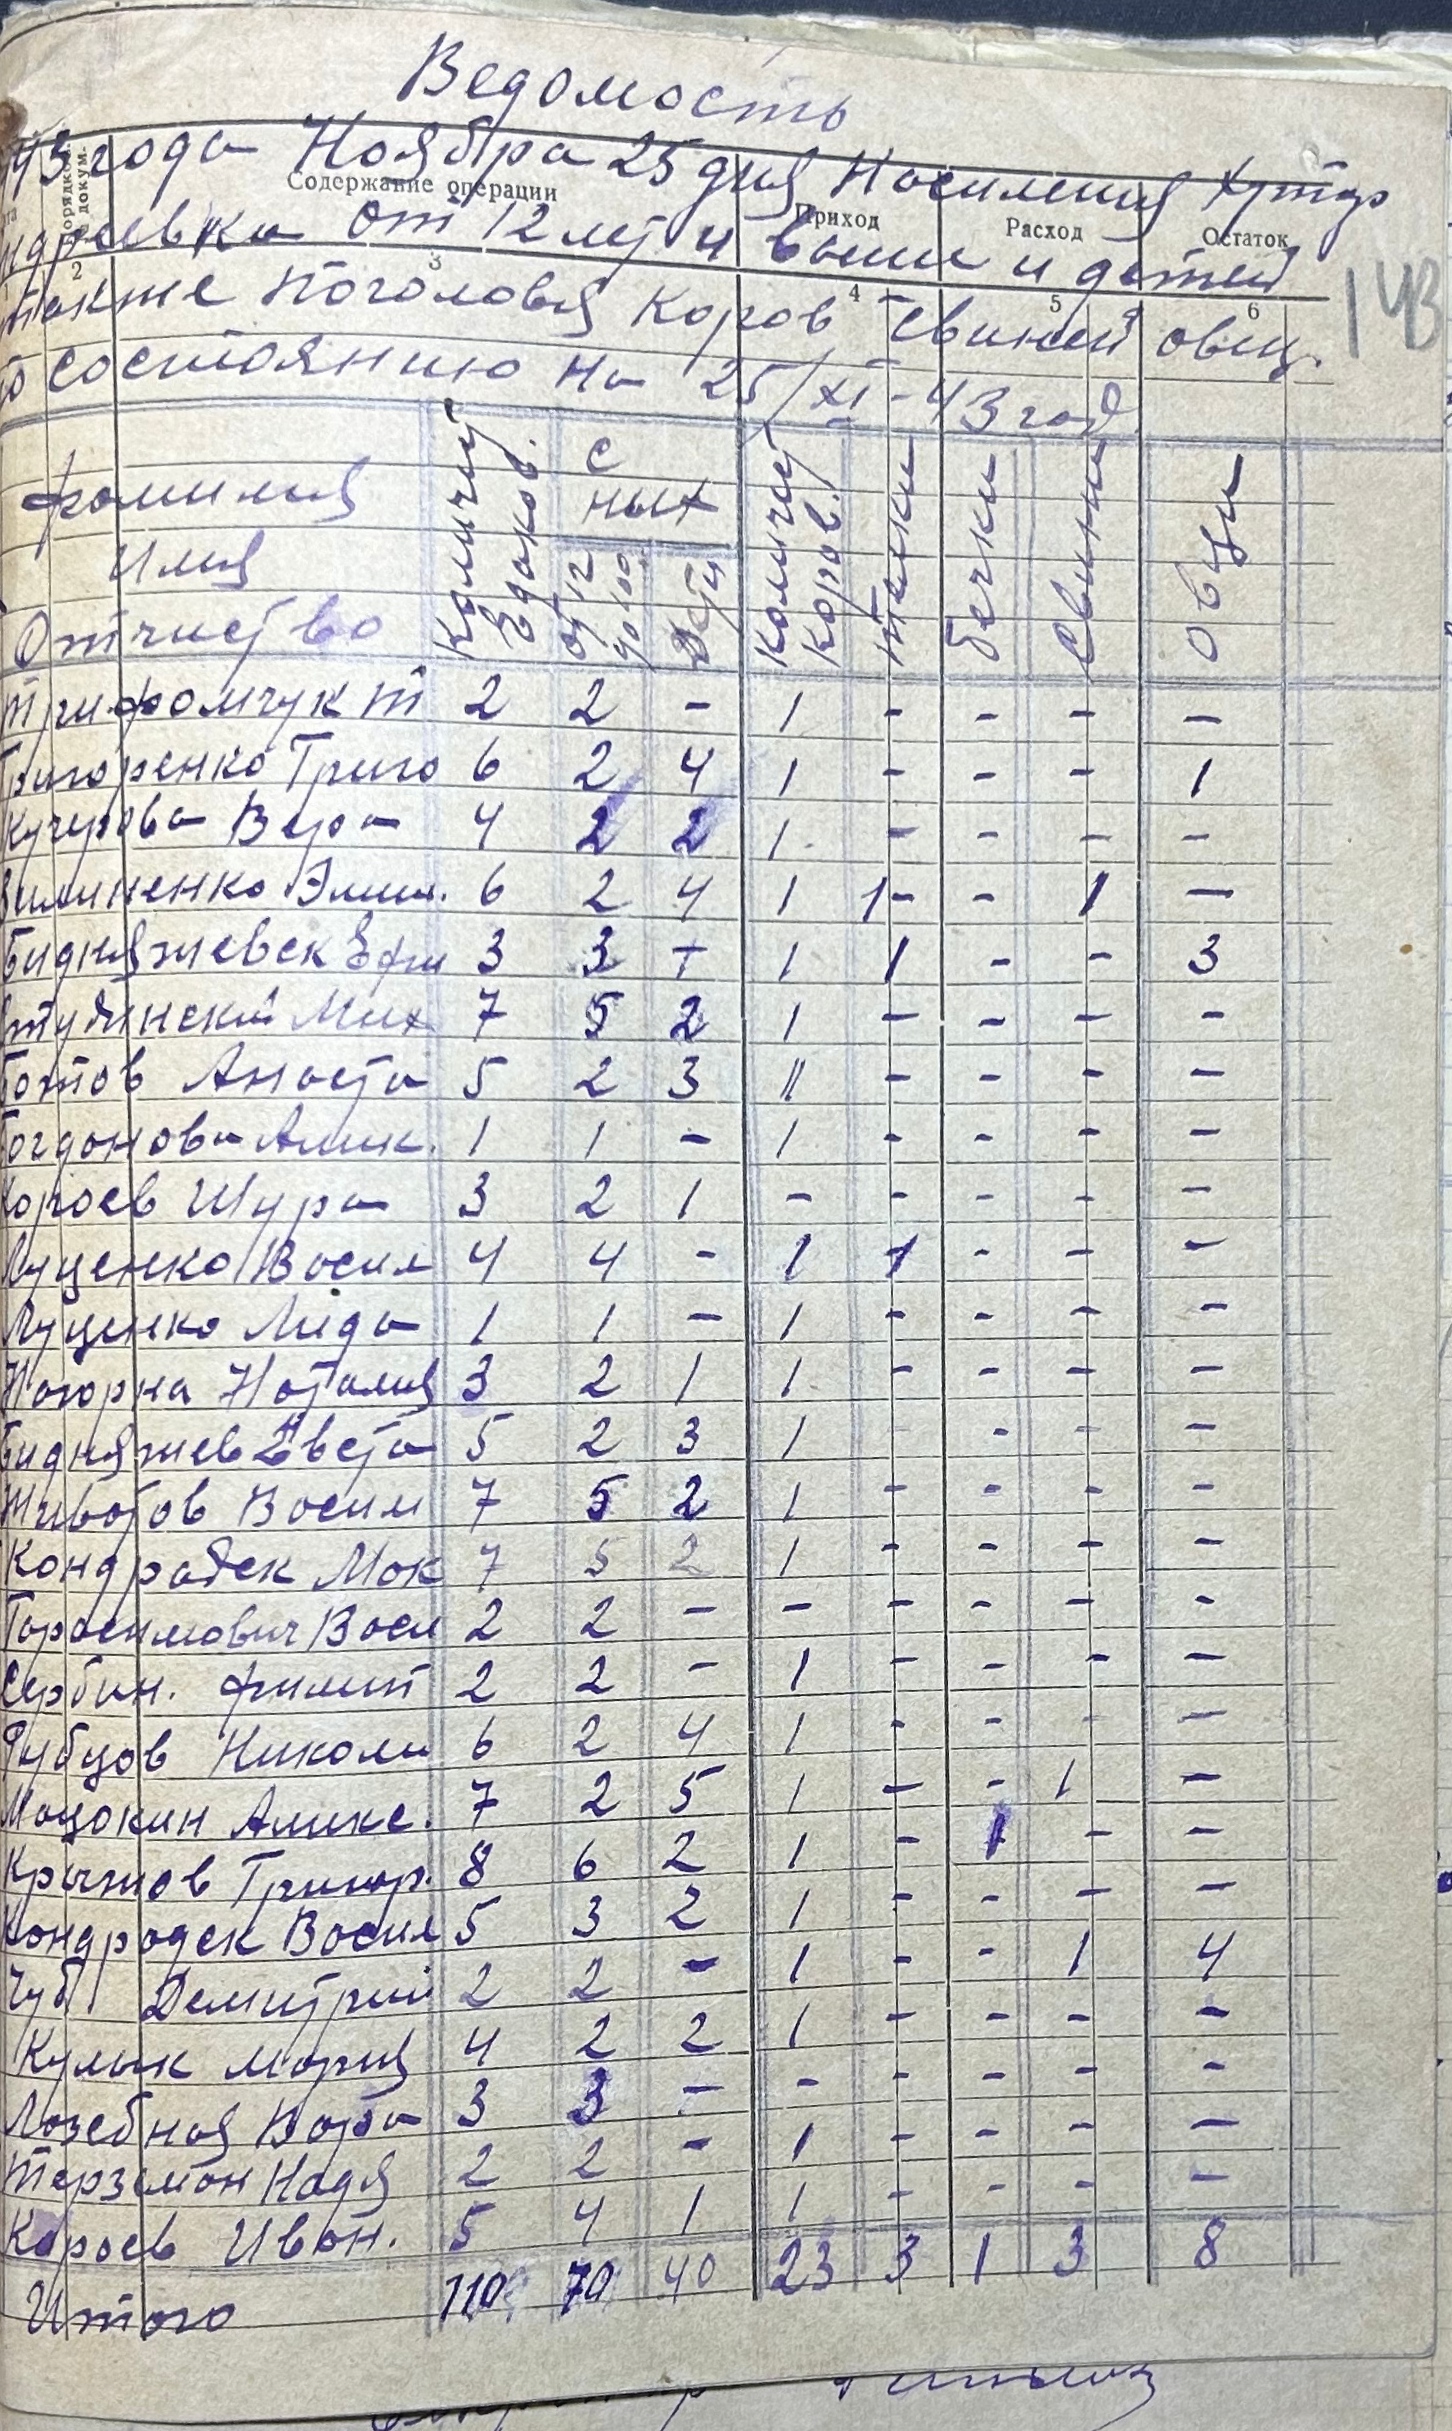 Ведомость
43 года Ноября 25 дня Насиления Хутор
от 12 лет и выше и детей
также поголовья Коров Свиней овец.
по состоянию на 25/XI - 43 год
Содержание операции Приход Расход Остаток
2 3 4 5 6
143
Фамилия Имя Отчиство Количест Едоков. С них от 12 до 100 Дети Количест Коров. телки бечки Свини Овци
Трифомчук Т 2 2 - 1 - - - -
Григоренко Григо 6 2 4 1 - - - 1
Кучерова Вера 4 2 2 1 - - - -
Эмил. 6 2 4 1 1- - 1 -
Бидняжевск Ефи 3 3 - 1 1 - - 3
Мих 7 5 2 1 - - - -
Ботов Анаста 5 2 3 1 - - - -
Богданова Алик. 1 1 - 1 - - - -
Короев Шура 3 2 1 - - - - -
Луценко Васил 4 4 - 1 1 - - -
Луценко Лида 1 1 - 1 - - - -
Нагорна Наталия 3 2 1 1 - - - -
Бидняжев Двета 5 2 3 1 - - - -
Животов Васил 7 5 2 1 - - - -
Кондрадек Мак 7 5 2 1 - - - -
Гарасимович Васи 2 2 - - - - - -
Сербин. Филип 2 2 - 1 - - - -
Рубцов Николи 6 2 4 1 - - - -
Мацокин Алике. 7 2 5 1 - - 1 -
Крыжов Григор. 8 6 2 1 - 1 - -
Кондродек Васил 5 3 2 1 - - - -
Чуб Демитрий 2 2 - 1 - - 1 4
Кулык Мария 4 2 2 1 - - - -
Лозебная Варя 3 3 - - - - - -
Терземан Надя 2 2 - 1 - - - -
Короев Иван. 5 4 1 1 - - - -
Итого 110 70 40 23 3 1 3 8